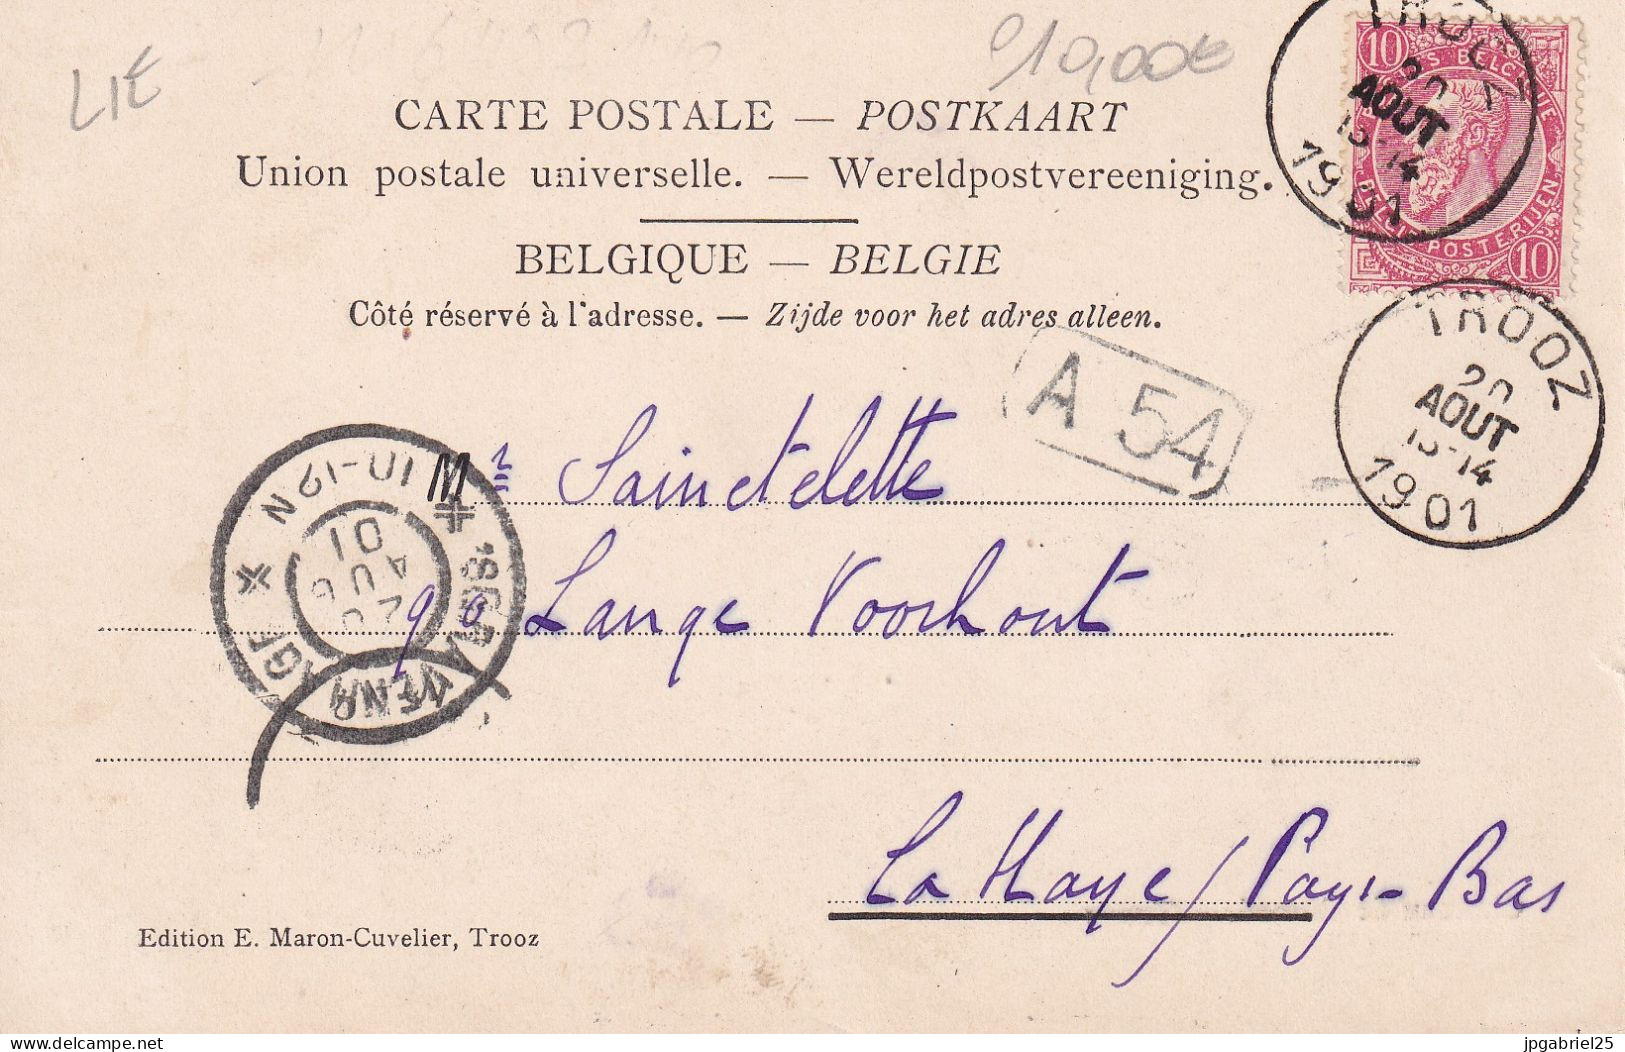 LIÉ
10,00€
CARTE POSTALE — POSTKAART
Union postale universelle. — Wereldpostvereeniging.
BELGIQUE — BELGIE
Côté réservé à l'adresse. — Zijde voor het adres alleen.
10
10
POSTERIJEN
TROOZ
20
AOUT
13-14
1901
TROOZ
20
AOUT
13-14
1901
A 54
'SGRAVENHAGE
10-12 N
AUG
01
Mr Sainctelette
90 Lange Voorhout
La Haye / Pays-Bas
Edition E. Maron-Cuvelier, Trooz
delcampe.net
jpgabriel25